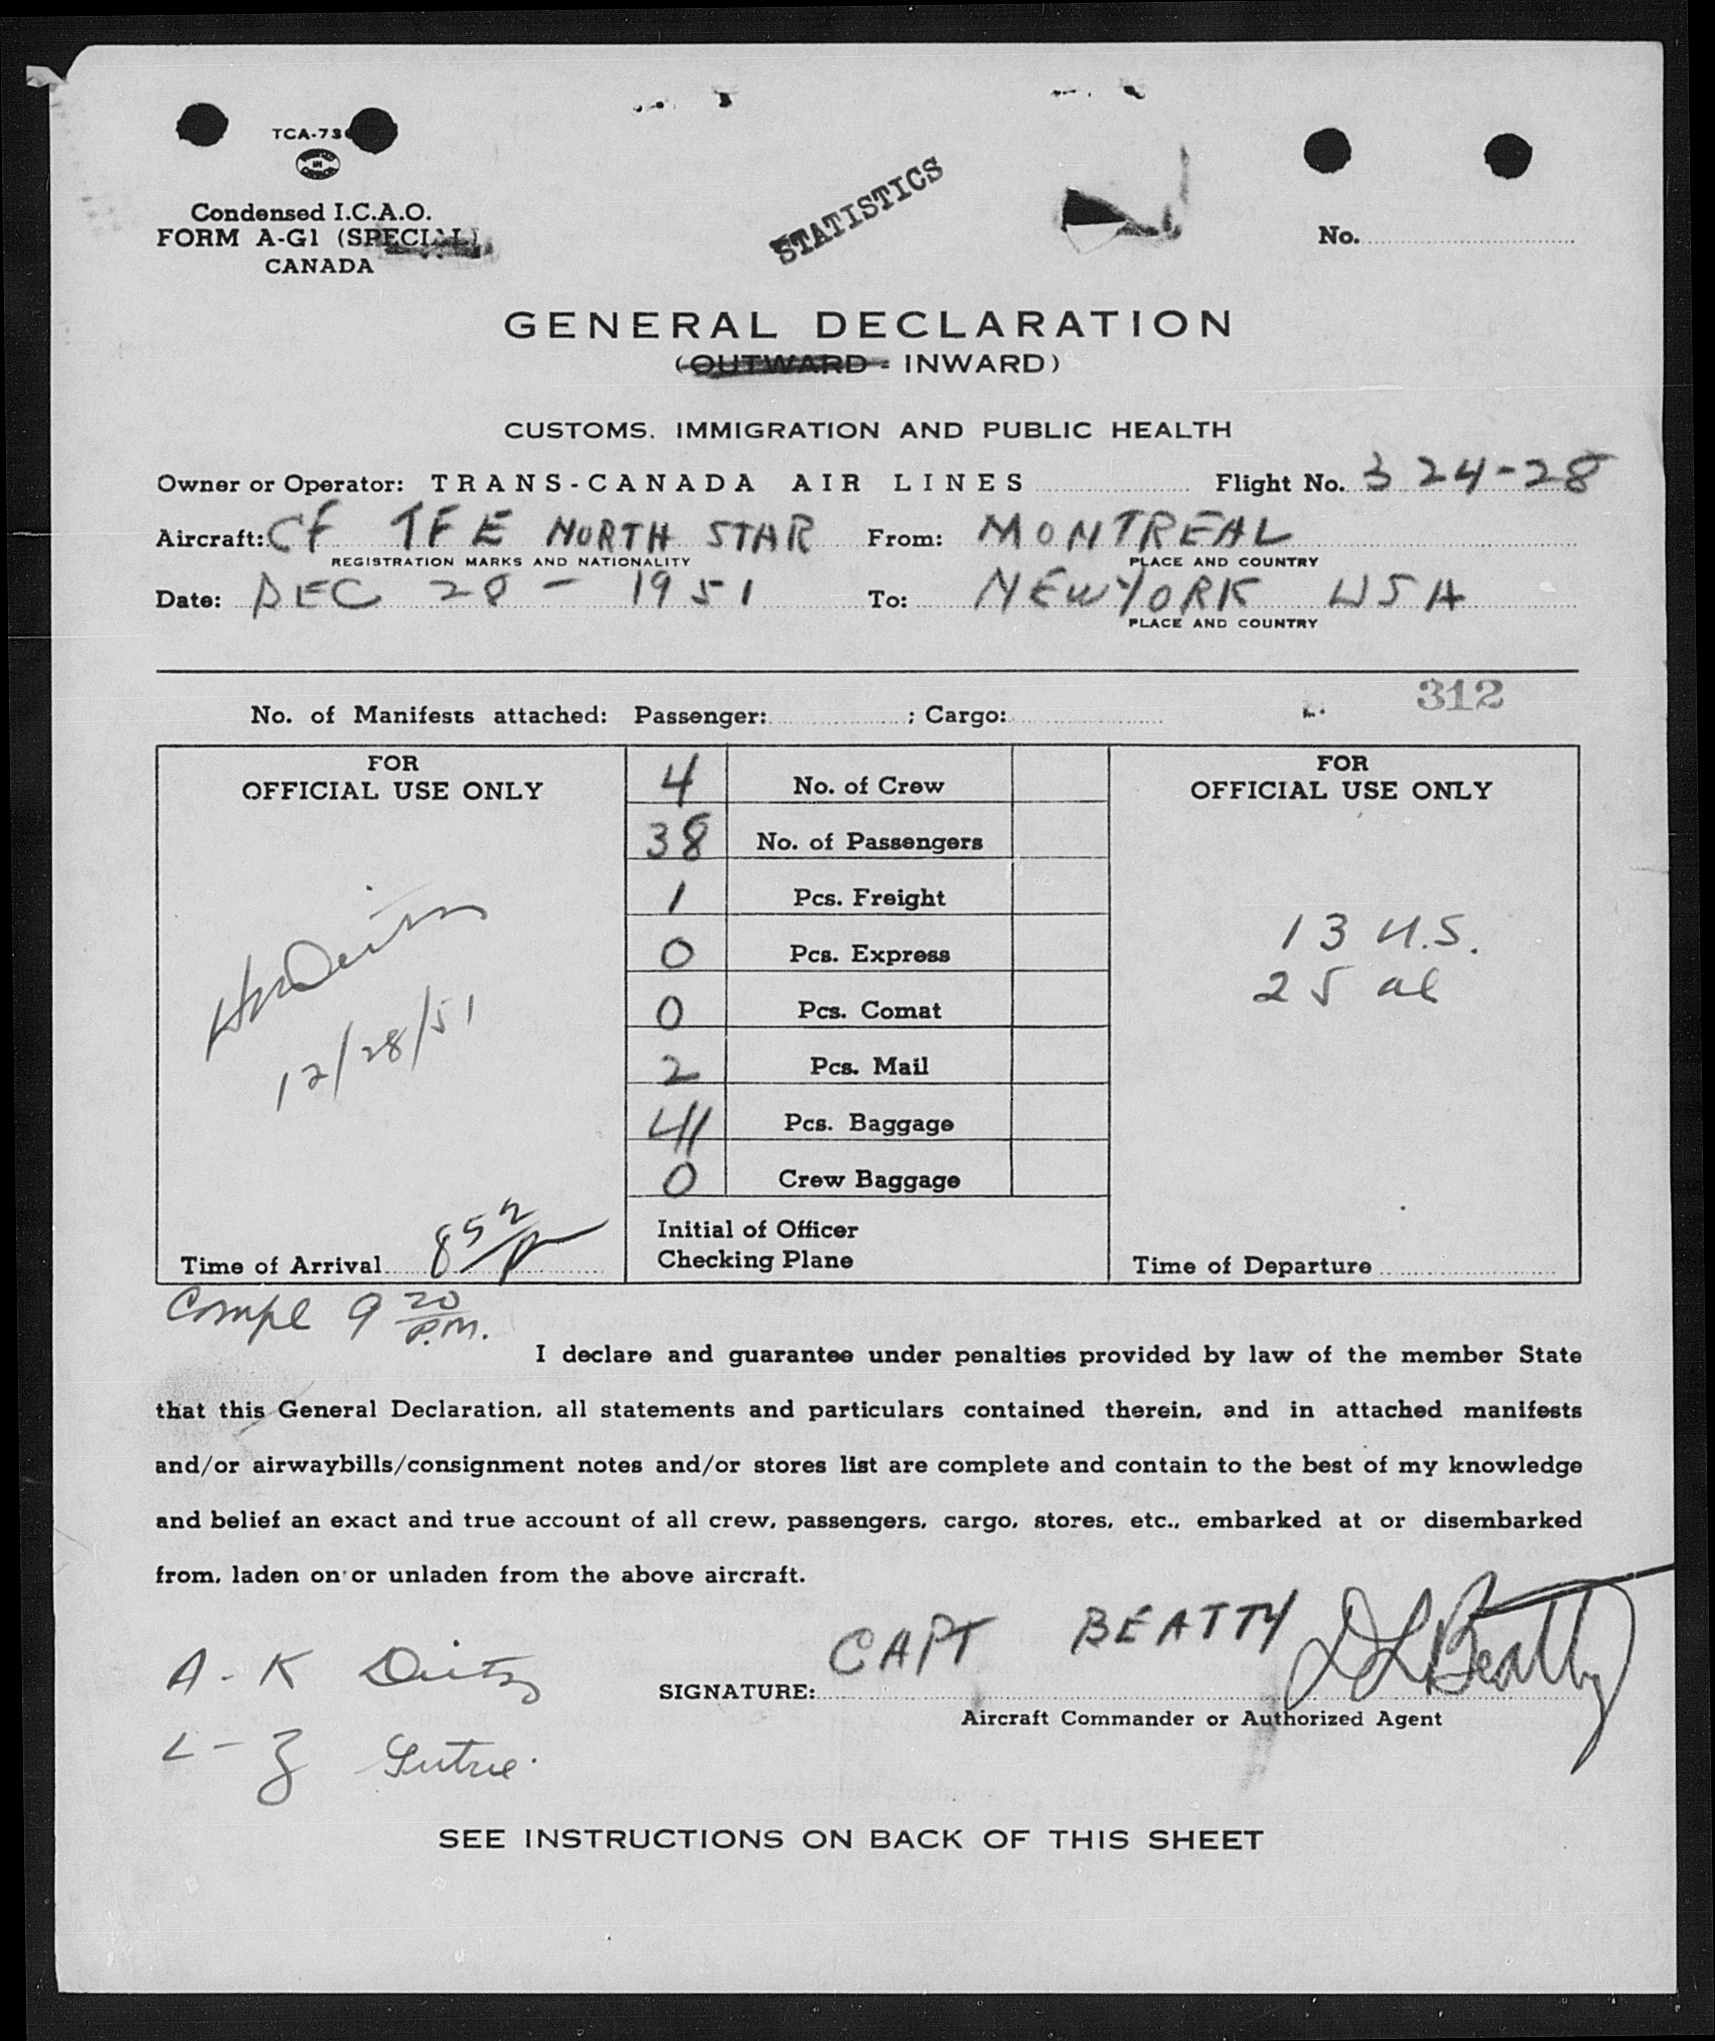 TCA-73
MADE IN CANADA
Condensed I.C.A.O.
FORM A-G1 (SPECIAL)
CANADA
STATISTICS
No.
GENERAL DECLARATION
(OUTWARD - INWARD)
CUSTOMS, IMMIGRATION AND PUBLIC HEALTH
Owner or Operator: TRANS-CANADA AIR LINES Flight No. 324-28
Aircraft: CF TFE NORTH STAR From: MONTREAL
REGISTRATION MARKS AND NATIONALITY PLACE AND COUNTRY
Date: DEC 28 - 1951 To: NEW YORK USA
PLACE AND COUNTRY
312
No. of Manifests attached: Passenger: ; Cargo:
FOR
OFFICIAL USE ONLY
12/28/51
Time of Arrival 8 52 p
4 No. of Crew
38 No. of Passengers
1 Pcs. Freight
0 Pcs. Express
0 Pcs. Comat
2 Pcs. Mail
41 Pcs. Baggage
0 Crew Baggage
Initial of Officer
Checking Plane
FOR
OFFICIAL USE ONLY
13 U.S.
25 al
Time of Departure
Compl 9 20 P.M.
I declare and guarantee under penalties provided by law of the member State
that this General Declaration, all statements and particulars contained therein, and in attached manifests
and/or airwaybills/consignment notes and/or stores list are complete and contain to the best of my knowledge
and belief an exact and true account of all crew, passengers, cargo, stores, etc., embarked at or disembarked
from, laden on or unladen from the above aircraft.
A-K Deitz
CAPT BEATTY DL Beatty
SIGNATURE:
Aircraft Commander or Authorized Agent
L-Z
SEE INSTRUCTIONS ON BACK OF THIS SHEET